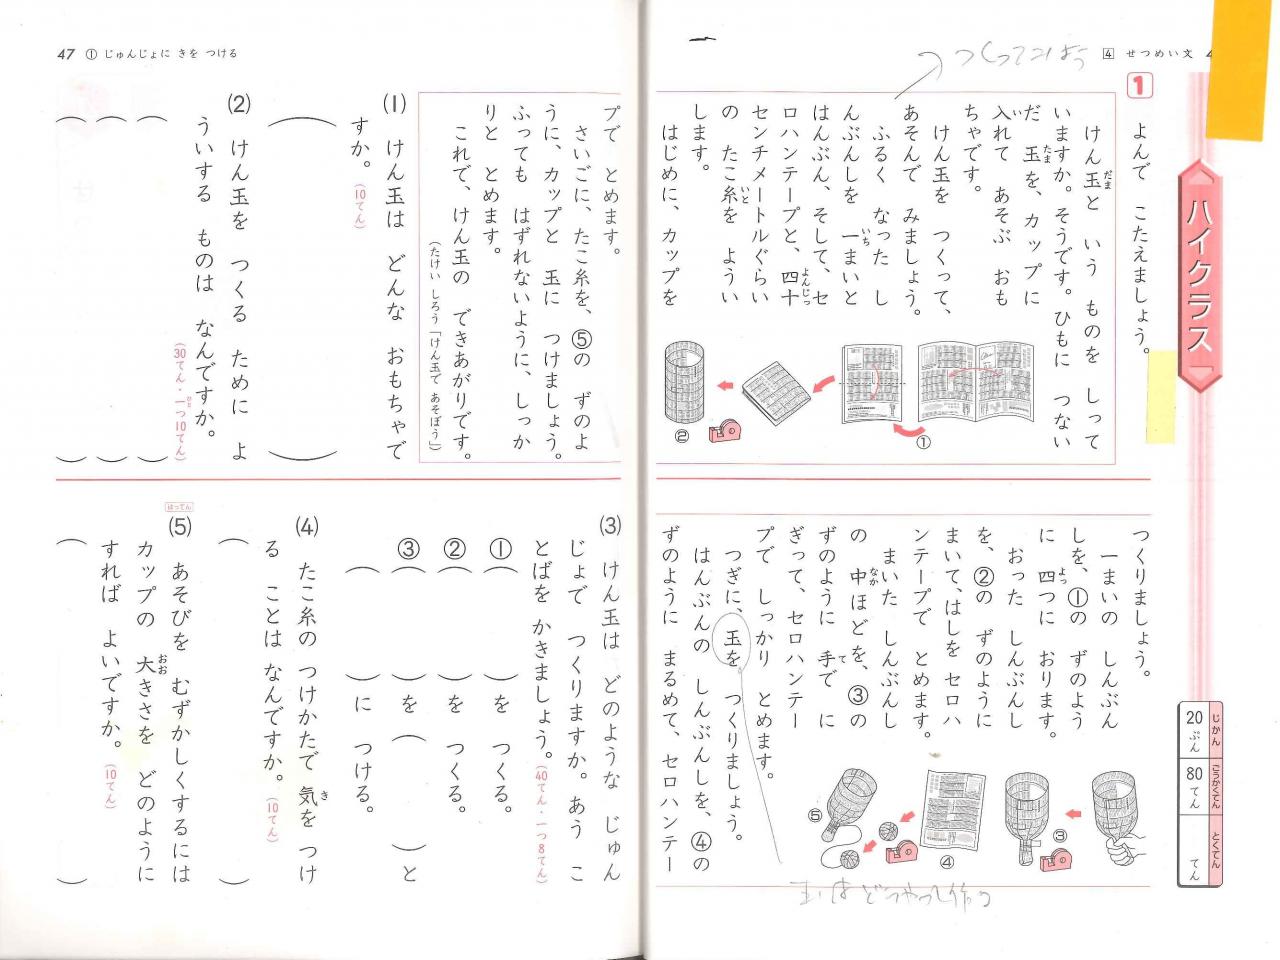 4 せつめい文
ハイクラス
じかん 20ぷん
ごうかくてん 80てん
とくてん てん
1 よんで こたえましょう。
けん玉と いう ものを しって
だま
いますか。そうです。ひもに つない
だ 玉を、カップに
たま
入れて あそぶ おも
い
ちゃです。
けん玉を つくって、
あそんで みましょう。
ふるく なった し
んぶんしを 一まいと
いち
はんぶん、そして、セ
ロハンテープと、四十
よんじっ
センチメートルぐらい
の たこ糸を ようい
いと
します。
はじめに、カップを
①
②
つくりましょう。
一まいの しんぶん
しを、①の ずのよう
に 四つに おります。
よっ
おった しんぶんし
を、②の ずのように
まいて、はしを セロハ
ンテープで とめます。
まいた しんぶんし
の 中ほどを、③の
なか
ずのように 手で に
て
ぎって、セロハンテー
プで しっかり とめます。
つぎに、玉を つくりましょう。
はんぶんの しんぶんしを、④の
ずのように まるめて、セロハンテー
③
④
⑤
玉はどうやって作る
47 ① じゅんじょに きを つける
プで とめます。
さいごに、たこ糸を、⑤の ずのよ
うに、カップと 玉に つけましょう。
ふっても はずれないように、しっか
りと とめます。
これで、けん玉の できあがりです。
(たけい しろう「けん玉で あそぼう」)
(1) けん玉は どんな おもちゃで
すか。(10てん)
(2) けん玉を つくる ために よ
ういする ものは なんですか。
(30てん・一つ10てん)
ひと
(3) けん玉は どのような じゅん
じょで つくりますか。あう こ
とばを かきましょう。(40てん・一つ8てん)
① ( )を つくる。
② ( )を つくる。
③ ( )を( )と
( )に つける。
(4) たこ糸の つけかたで 気を つけ
き
る ことは なんですか。(10てん)
はってん
(5) あそびを むずかしくするには
カップの 大きさを どのように
おお
すれば よいですか。(10てん)